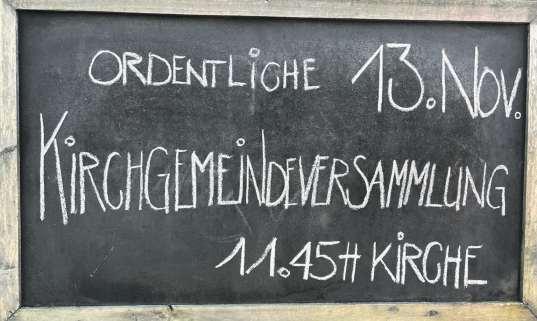 ORDENTLiCHE 13. Nov.
KiRCHGEMEiNDEVERSAMMLUNG
11.45H KiRCHE